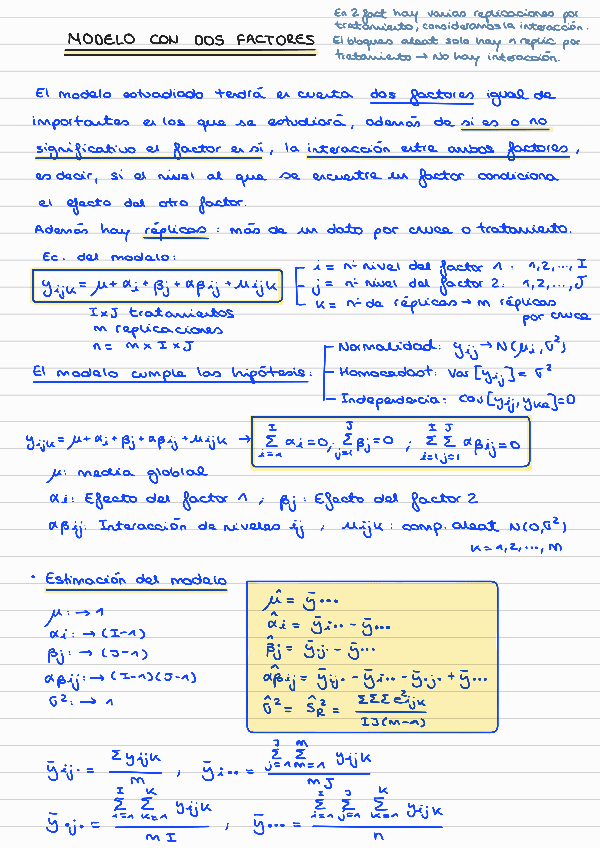 En 2 fact hay varias replicaciones por
tratamiento, consideramos la interacción.
El bloques aleat solo hay n replic por
tratamiento → No hay interacción.
MODELO CON DOS FACTORES
El modelo estudiado tendrá en cuenta dos factores igual de
importantes en los que se estudiará, además de si es o no
significativo el factor en sí, la interacción entre ambos factores,
es decir, si el nivel al que se encuentre un factor condiciona
el efecto del otro factor.
Además hay réplicas: más de un dato por cruce o tratamiento.
Ec. del modelo:
yijk = μ + αi + βj + αβij + uijk
i = nº nivel del factor 1 : 1,2,...,I
j = nº nivel del factor 2: 1,2,...,J
k = nº de réplicas → m réplicas
por cruce
I×J tratamientos
m replicaciones
n = m × I × J
El modelo cumple las hipótesis:
Normalidad: yij → N(μi, σ²)
Homocedast: Var[yij] = σ²
Independencia: Cov[yij, ykl] = 0
yijk = μ + αi + βj + αβij + uijk → Σ(i=1..I) αi = 0; Σ(j=1..J) βj = 0 ; Σ(i=1..I) Σ(j=1..J) αβij = 0
μ: media global
αi: Efecto del factor 1 ; βj: Efecto del factor 2
αβij: Interacción de niveles ij , uijk: comp. aleat N(0,σ²)
k = 1,2,...,m
· Estimación del modelo
μ: → 1
αi: → (I-1)
βj: → (J-1)
αβij: → (I-1)(J-1)
σ²: → 1
μ̂ = ȳ...
α̂i = ȳi.. - ȳ...
β̂j = ȳ.j. - ȳ...
αβ̂ij = ȳij. - ȳi.. - ȳ.j. + ȳ...
σ̂² = ŜR² = ΣΣΣ e²ijk / IJ(m-1)
ȳij. = Σ yijk / m , ȳi.. = Σ(j=1..J) Σ(m=1..m) yijk / mJ
ȳ.j. = Σ(i=1..I) Σ(k=1..K) yijk / mI ; ȳ... = Σ(i=1..I) Σ(j=1..J) Σ(k=1..K) yijk / n